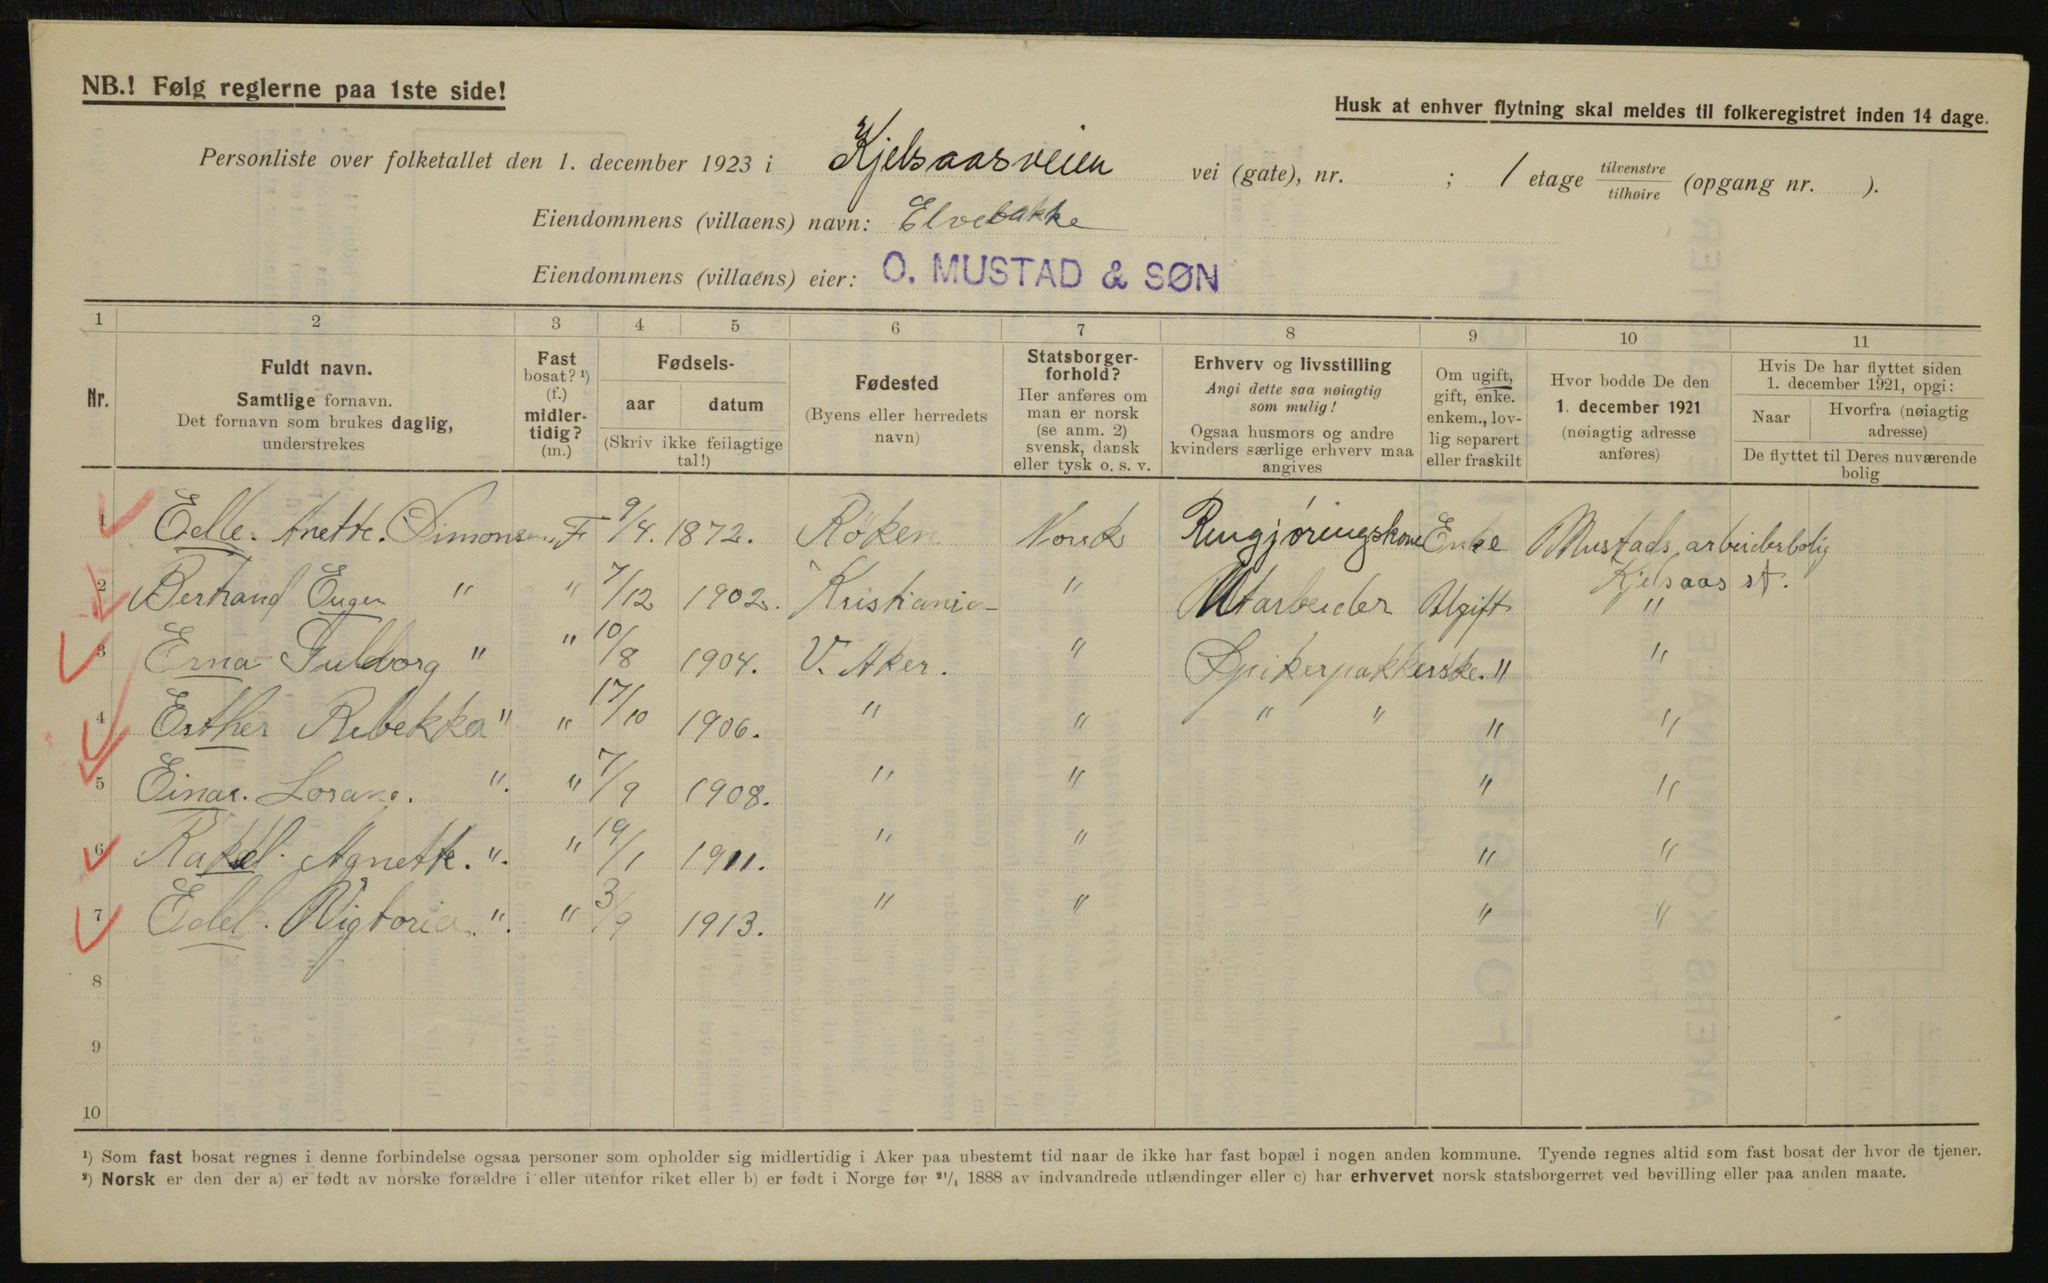 NB.! Følg reglerne paa 1ste side!
Husk at enhver flytning skal meldes til folkeregistret inden 14 dage.
Personliste over folketallet den 1. december 1923 i Kjelsaasveien vei (gate), nr. ; 1 etage tilvenstre / tilhøire (opgang nr. ).
Eiendommens (villaens) navn: Elvebakke
Eiendommens (villaens) eier: O. MUSTAD & SØN
1 2 3 4 5 6 7 8 9 10 11
Nr.
Fuldt navn.
Samtlige fornavn.
Det fornavn som brukes daglig,
understrekes
Fast
bosat? ¹)
(f.)
midler-
tidig?
(m.)
Fødsels-
aar datum
(Skriv ikke feilagtige
tal!)
Fødested
(Byens eller herredets
navn)
Statsborger-
forhold?
Her anføres om
man er norsk
(se anm. 2)
svensk, dansk
eller tysk o. s. v.
Erhverv og livsstilling
Angi dette saa nøiagtig
som mulig!
Ogsaa husmors og andre
kvinders særlige erhverv maa
angives
Om ugift,
gift, enke.
enkem., lov-
lig separert
eller fraskilt
Hvor bodde De den
1. december 1921
(nøiagtig adresse
anføres)
Hvis De har flyttet siden
1. december 1921, opgi:
Naar
Hvorfra (nøiagtig
adresse)
De flyttet til Deres nuværende
bolig
1 Edle. Anette. Simonsen F 9/4. 1872. Röken Norsk Rengjøringskone Enke Mustads arbeiderbolig
Kjelsaas st.
2 Bertrand Eugen " " 7/12 1902. Kristiania " Utarbeider Ugift "
3 Erna Gulborg " " 10/8 1904. V. Aker. " Spikerpakkerske. " "
4 Esther Rebekka " " 17/10 1906. " " " " " "
5 Einar. " " 7/9 1908. " " " "
6 Rakel. Agnette. " " 19/1 1911. " " " "
7 Edel. Vigtoria. " " 3/9 1913. " " " "
8
9
10
¹) Som fast bosat regnes i denne forbindelse ogsaa personer som opholder sig midlertidig i Aker paa ubestemt tid naar de ikke har fast bopæl i nogen anden kommune. Tyende regnes altid som fast bosat der hvor de tjener.
²) Norsk er den der a) er født av norske forældre i eller utenfor riket eller b) er født i Norge før ²¹/₄ 1888 av indvandrede utlændinger eller c) har erhvervet norsk statsborgerret ved bevilling eller paa anden maate.